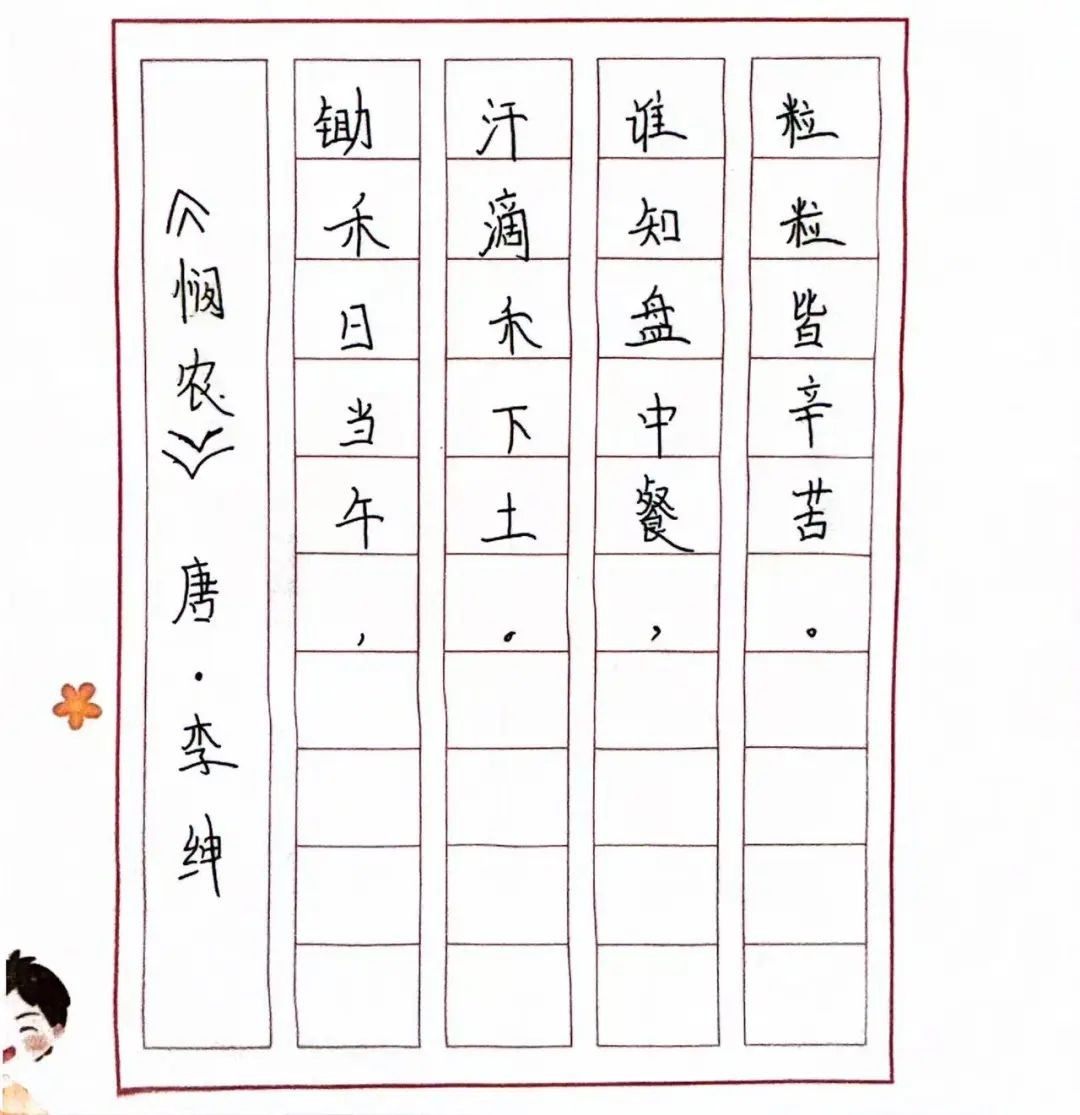 《悯农》 唐·李绅
锄禾日当午，
汗滴禾下土。
谁知盘中餐，
粒粒皆辛苦。